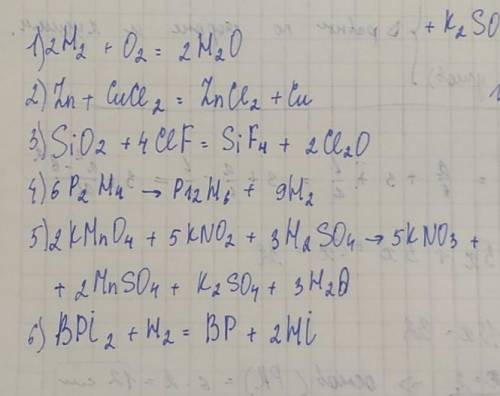 + K₂SO
1) 2H₂ + O₂ = 2H₂O
2) Zn + CuCl₂ = ZnCl₂ + Cu
3) SiO₂ + 4ClF = SiF₄ + 2Cl₂O
4) 6P₂H₄ → P₁₂H₆ + 9H₂
5) 2KMnO₄ + 5KNO₂ + 3H₂SO₄ → 5KNO₃ +
+ 2MnSO₄ + K₂SO₄ + 3H₂O
6) BPi₂ + H₂ = BP + 2Hi